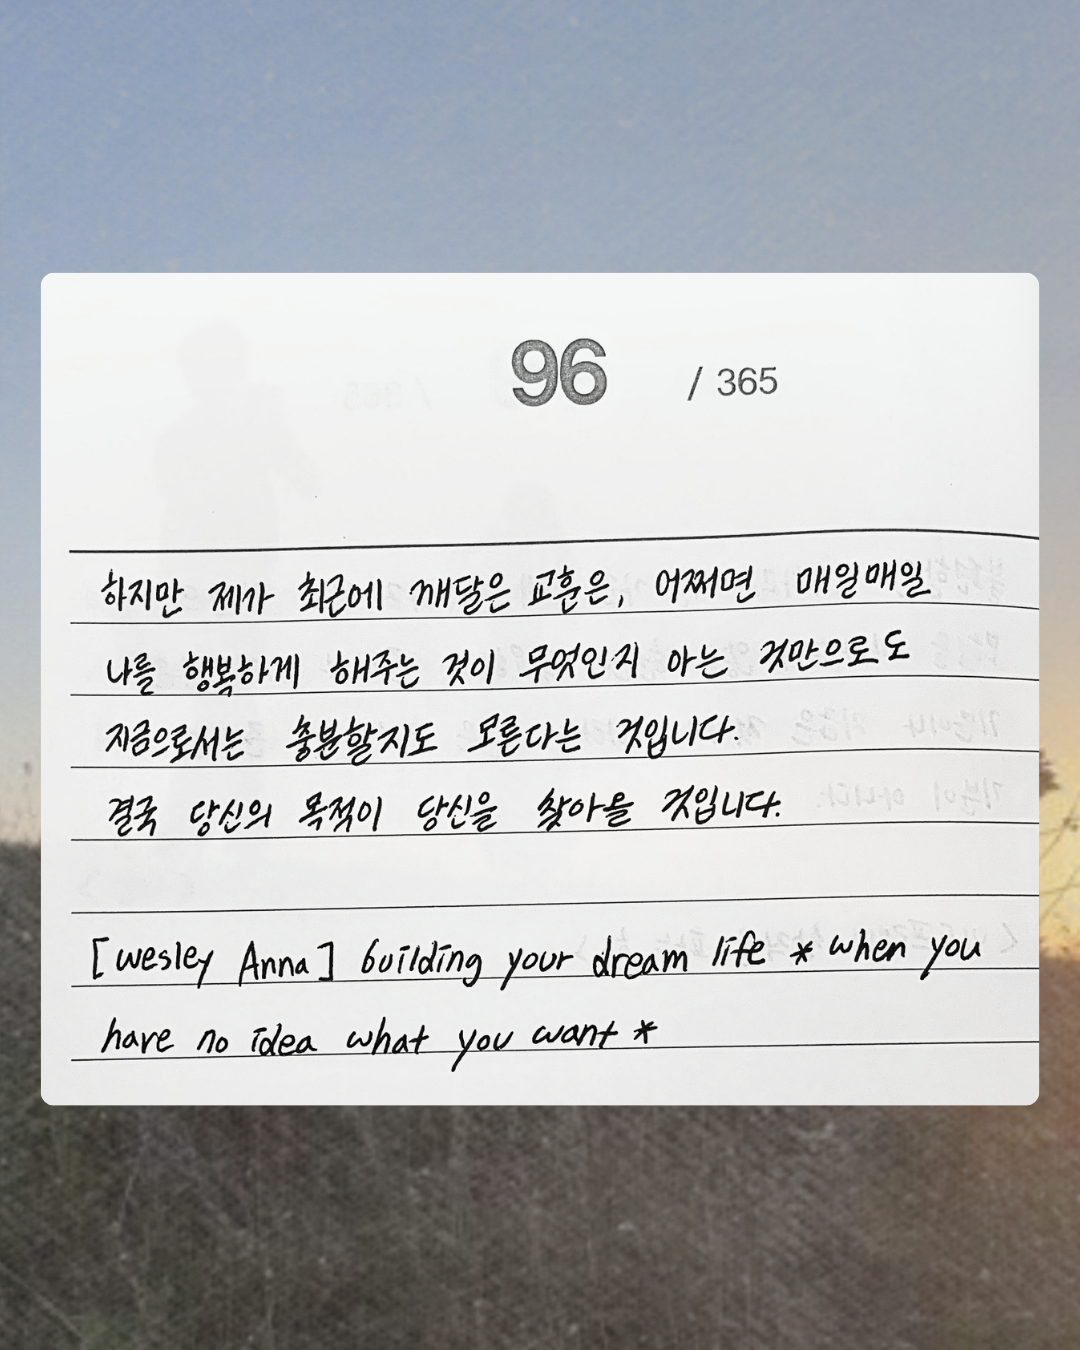 96 / 365
하지만 제가 최근에 깨달은 교훈은, 어쩌면 매일매일
나를 행복하게 해주는 것이 무엇인지 아는 것만으로도
지금으로서는 충분할지도 모른다는 것입니다.
결국 당신의 목적이 당신을 찾아올 것입니다.
[wesley Anna] building your dream life * when you
have no idea what you want *